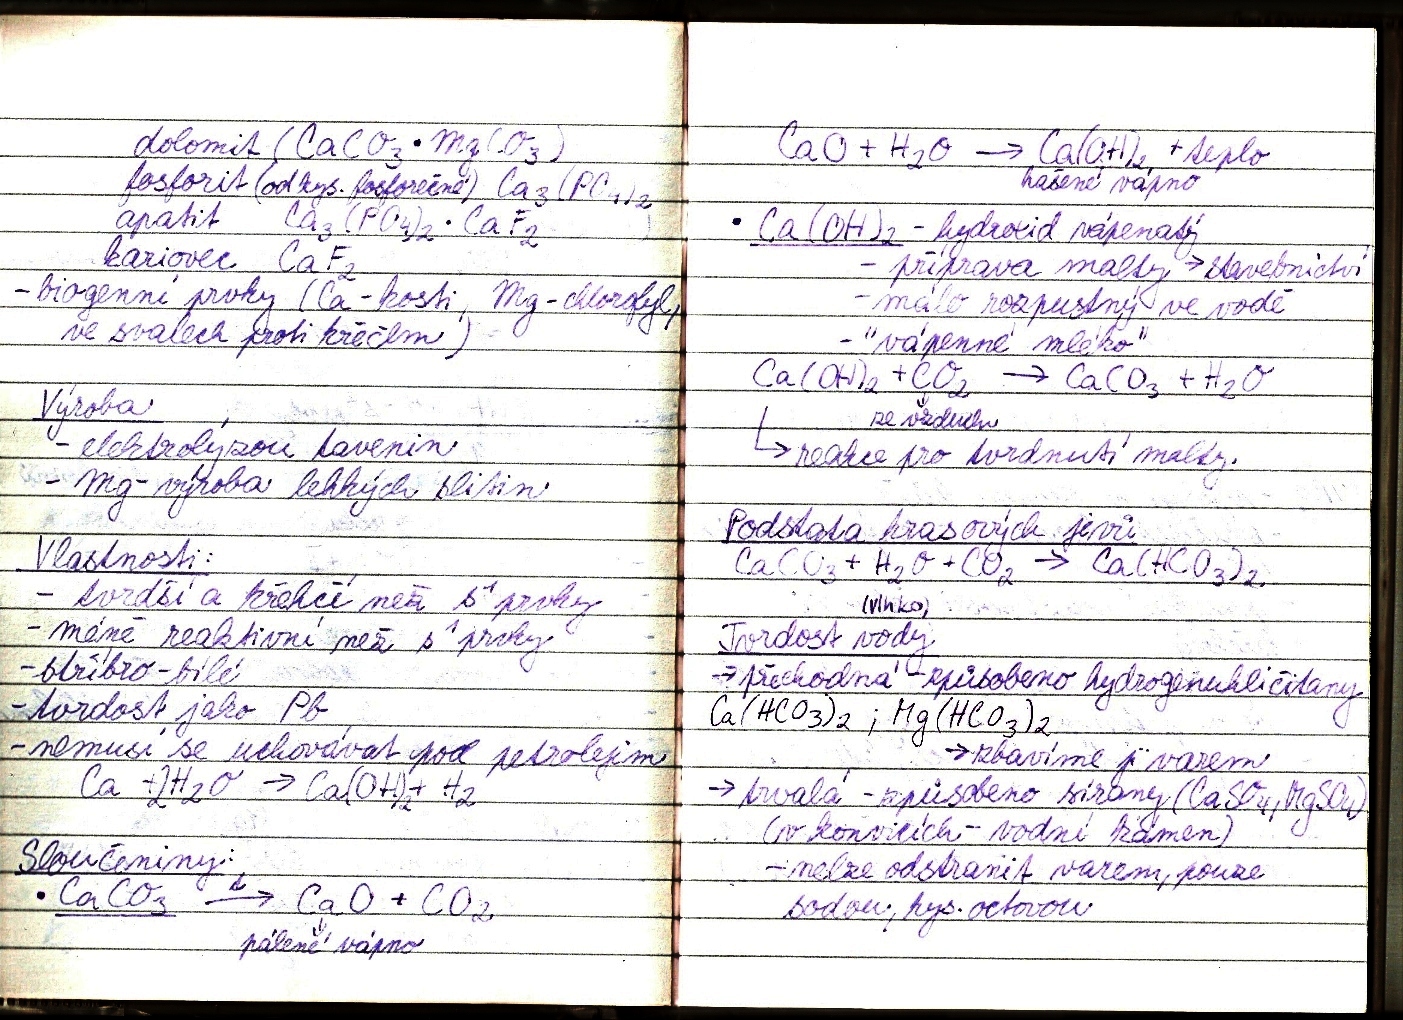 dolomit (CaCO₃ · MgCO₃)
fosforit (od kys. fosforečné) Ca₃(PO₄)₂
apatit Ca₃(PO₄)₂ · CaF₂
kazivec CaF₂
- biogenní prvky (Ca - kosti, Mg - chlorofyl,
ve svalech proti křečím)
Výroba
- elektrolýzou tavenin
- Mg - výroba lehkých slitin
Vlastnosti:
- tvrdší a křehčí než s¹ prvky
- méně reaktivní než s¹ prvky
- stříbro-bílé
- tvrdost jako Pb
- nemusí se uchovávat pod petrolejem
Ca + 2H₂O → Ca(OH)₂ + H₂
Sloučeniny:
• CaCO₃ →ᵗ CaO + CO₂
pálené vápno
CaO + H₂O → Ca(OH)₂ + teplo
hašené vápno
• Ca(OH)₂ - hydroxid vápenatý
- příprava malty → stavebnictví
- málo rozpustný ve vodě
- "vápenné mléko"
Ca(OH)₂ + CO₂ → CaCO₃ + H₂O
ze vzduchu
↳ reakce pro tvrdnutí malty.
Podstata krasových jevů
CaCO₃ + H₂O + CO₂ → Ca(HCO₃)₂
(vlhko)
Tvrdost vody
→ přechodná - způsobeno hydrogenuhličitany
Ca(HCO3)₂ ; Mg(HCO3)₂
→ zbavíme ji varem
→ trvalá - způsobeno sírany (CaSO₄, MgSO₄)
(v konvicích - vodní kámen)
- nelze odstranit varem, pouze
sodou, kys. octovou